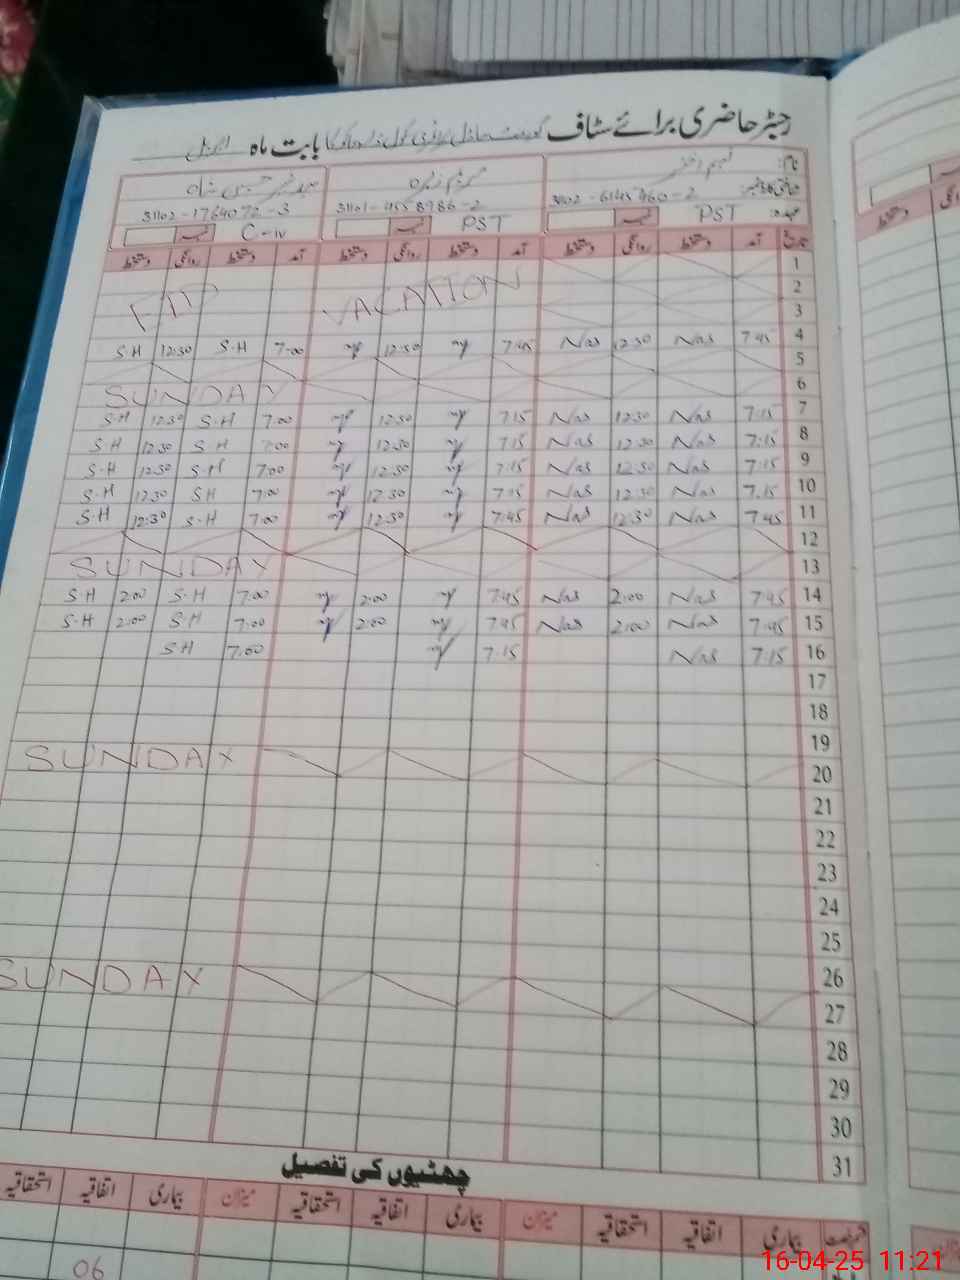 رجسٹر حاضری برائے سٹاف گورنمنٹ ماڈل پرائمری سکول بابت ماہ اپریل
نام:
شناختی کارڈ نمبر: 31102-6145460-2 31101-4558986-2 31102-1764072-3
عہدہ: PST PST C-iv
تاریخ آمد دستخط روانگی دستخط آمد دستخط روانگی دستخط آمد دستخط روانگی دستخط
1
2 VACATION
3
4 7:45 Nas 12:30 Nas 7:45 my 12:30 my 7:00 S-H 12:30 S-H
5
6 SUNDAY
7 7:15 Nas 12:30 Nas 7:15 my 12:30 my 7:00 S-H 12:30 S-H
8 7:15 Nas 12:30 Nas 7:15 my 12:30 my 7:00 S-H 12:30 S-H
9 7:15 Nas 12:30 Nas 7:15 my 12:30 my 7:00 S-H 12:30 S-H
10 7:15 Nas 12:30 Nas 7:15 my 12:30 my 7:00 SH 12:30 S-H
11 7:45 Nas 12:30 Nas 7:45 my 12:30 my 7:00 S-H 12:30 S-H
12
13 SUNDAY
14 7:45 Nas 2:00 Nas 7:45 my 2:00 my 7:00 S-H 2:00 S-H
15 7:45 Nas 2:00 Nas 7:45 my 2:00 my 7:00 S-H 2:00 S-H
16 7:15 Nas 7:15 my 7:00 S-H
17
18
19
20 SUNDAY
21
22
23
24
25
26
27 SUNDAY
28
29
30
31
چھٹیوں کی تفصیل
بیماری اتفاقیہ استحقاقیہ میزان بیماری اتفاقیہ استحقاقیہ میزان بیماری اتفاقیہ استحقاقیہ
06
16-04-25 11:21